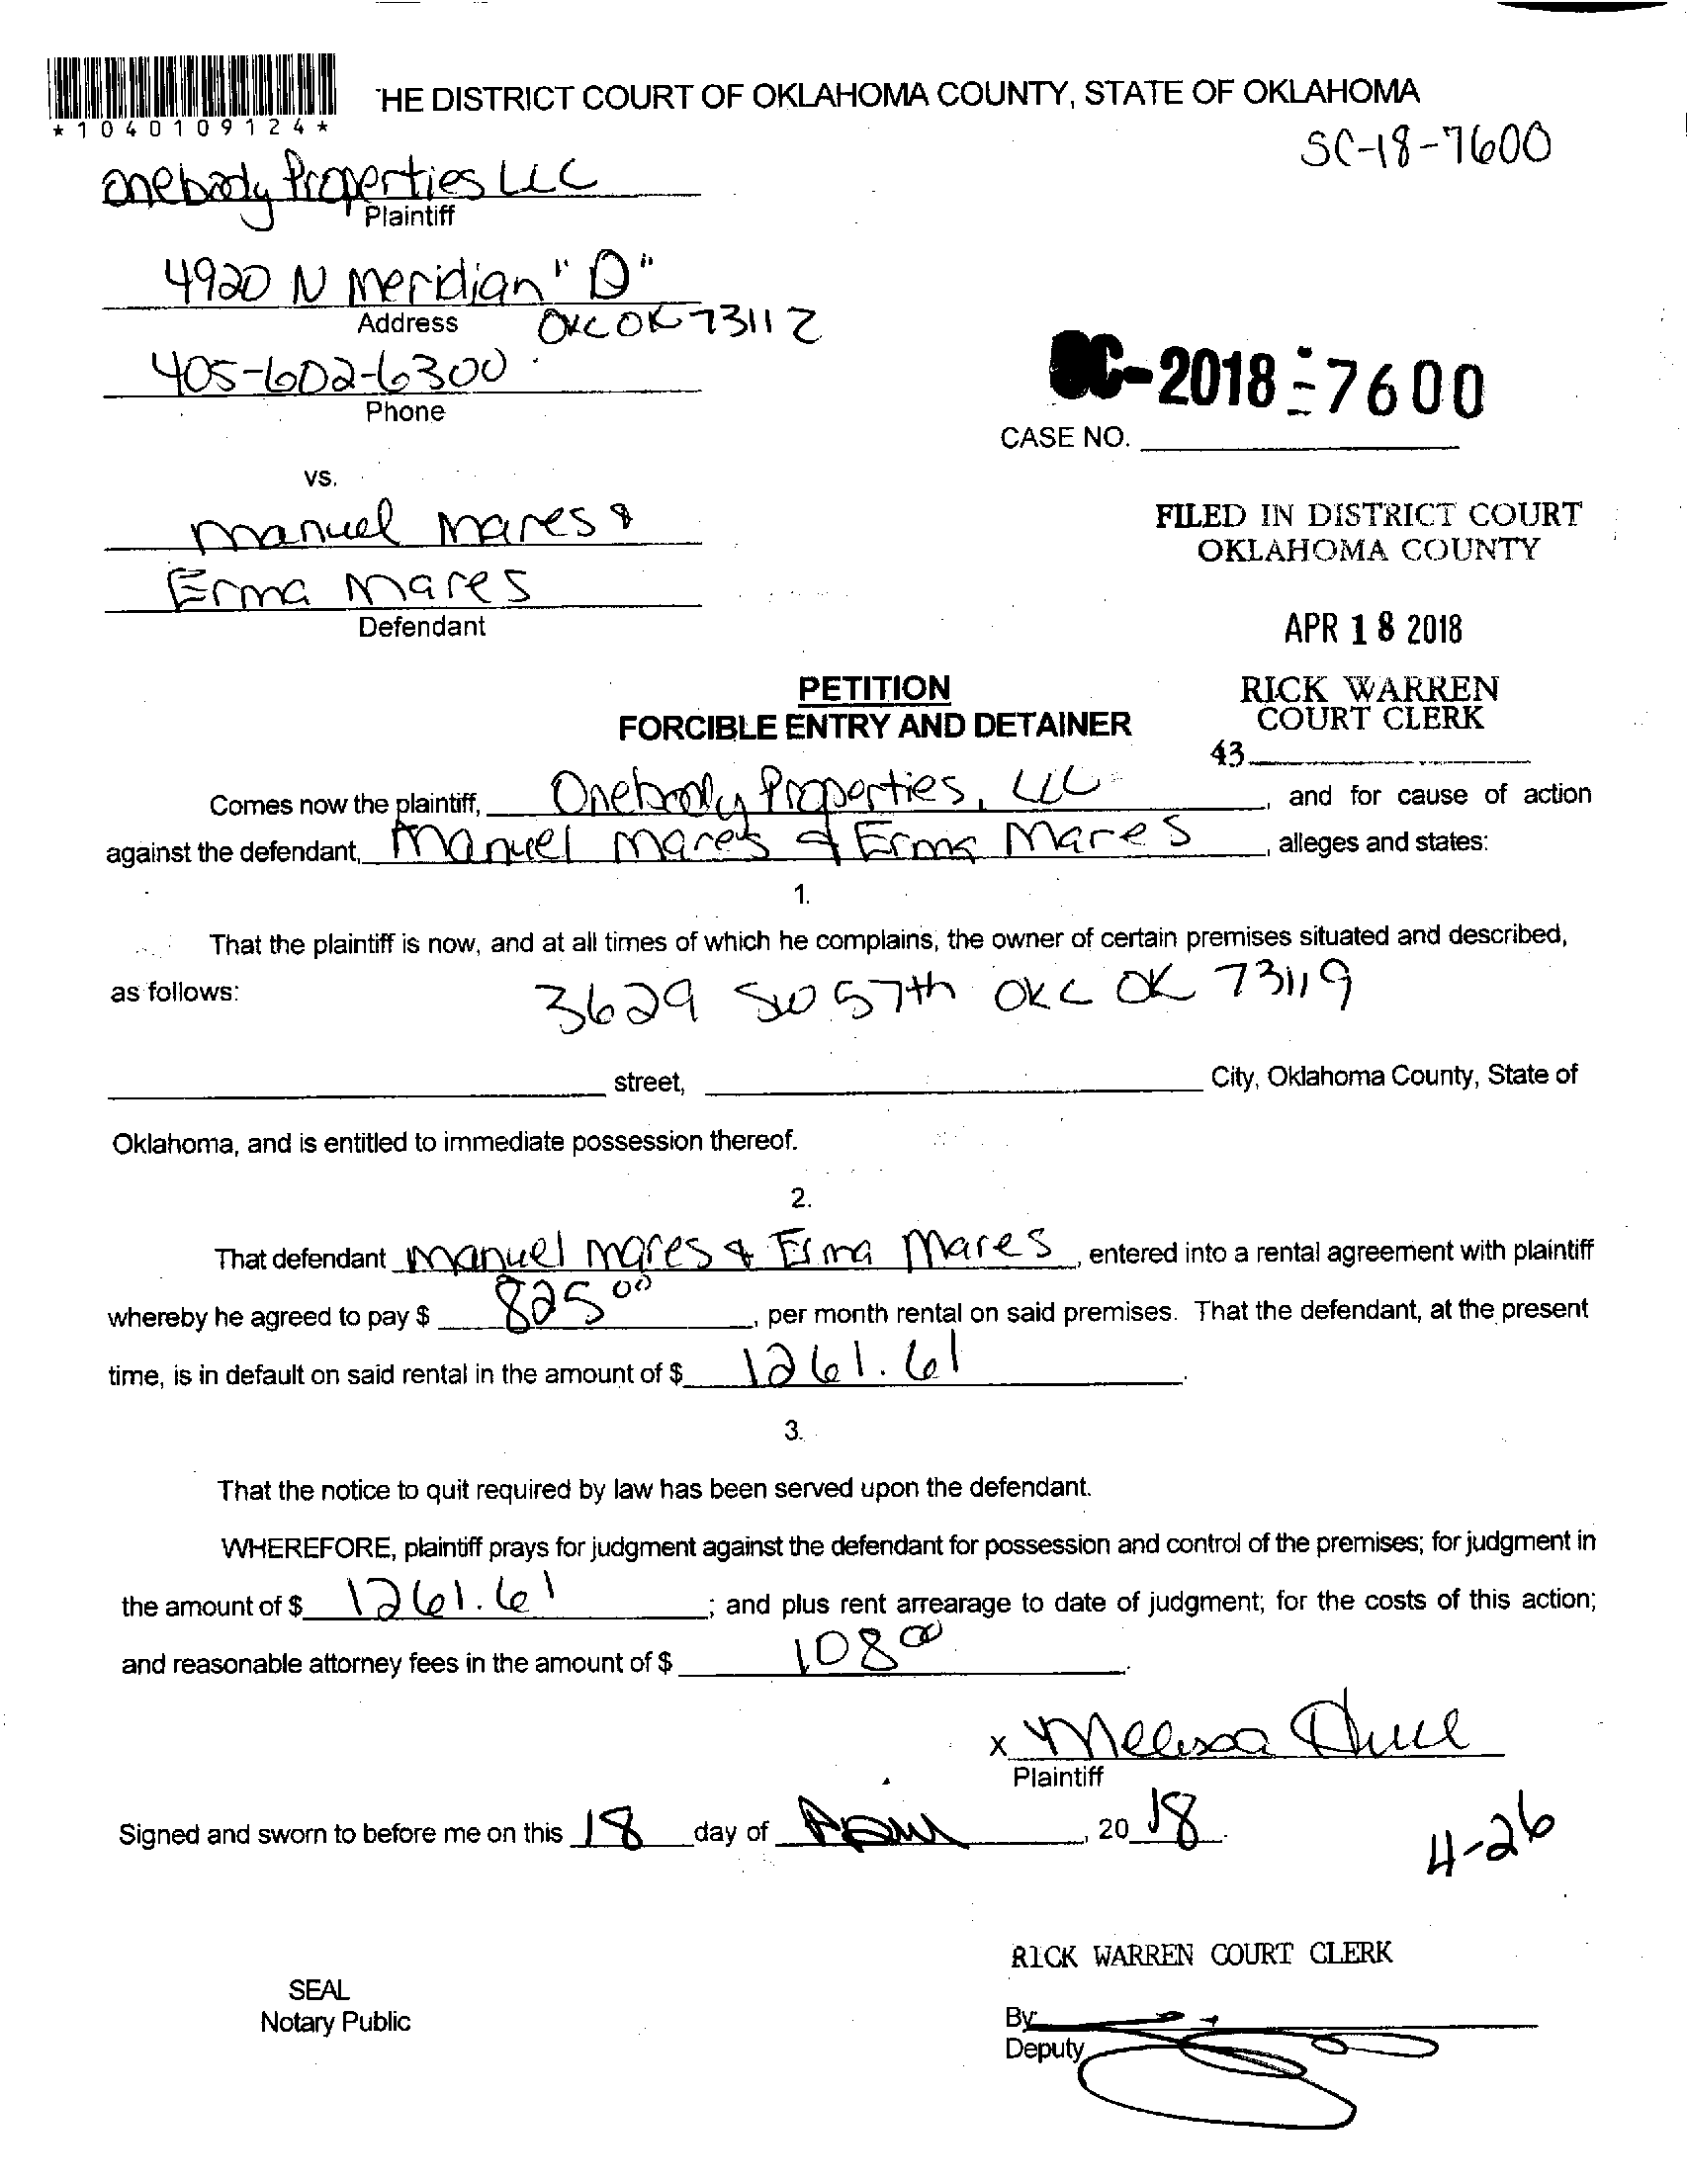 *1040109124*
HE DISTRICT COURT OF OKLAHOMA COUNTY, STATE OF OKLAHOMA
SC-18-7600
Onebody Properties LLC
Plaintiff
4920 N Meridian "D"
Address OKC OK 73112
405-602-6300
Phone
SC-2018-7600
CASE NO.
vs.
Manuel Mares &
Erma Mares
Defendant
FILED IN DISTRICT COURT
OKLAHOMA COUNTY
APR 18 2018
RICK WARREN
COURT CLERK
43
PETITION
FORCIBLE ENTRY AND DETAINER
Comes now the plaintiff, Onebody Properties, LLC, and for cause of action
against the defendant, Manuel Mares & Erma Mares, alleges and states:
1.
That the plaintiff is now, and at all times of which he complains, the owner of certain premises situated and described,
as follows: 3629 SW 57th OKC OK 73119
street, City, Oklahoma County, State of
Oklahoma, and is entitled to immediate possession thereof.
2.
That defendant Manuel Mares & Erma Mares, entered into a rental agreement with plaintiff
whereby he agreed to pay $ 825 00, per month rental on said premises. That the defendant, at the present
time, is in default on said rental in the amount of $ 1261.61.
3.
That the notice to quit required by law has been served upon the defendant.
WHEREFORE, plaintiff prays for judgment against the defendant for possession and control of the premises; for judgment in
the amount of $ 1261.61; and plus rent arrearage to date of judgment; for the costs of this action;
and reasonable attorney fees in the amount of $ 108 00.
x Melissa
Plaintiff
Signed and sworn to before me on this 18 day of April, 20 18.
4-26
RICK WARREN COURT CLERK
SEAL
Notary Public
By
Deputy